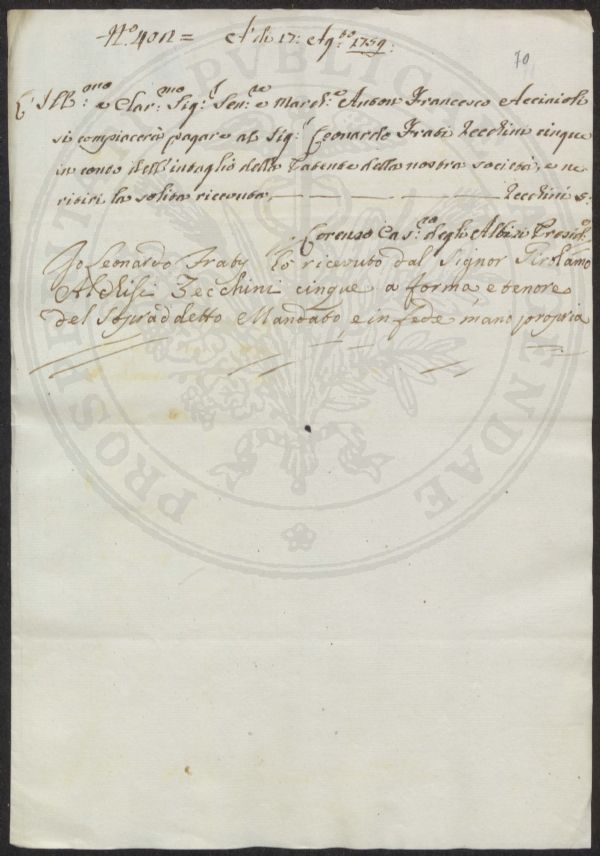 N.º 4012 = A' di 17: Ag.to 1759:
70
L' Ill.mo e Clar.mo Sig.r Sen.re e March.e Anton Francesco Acciaioli
si compiacerà pagare al Sig.r Leonardo Frati Zecchini cinque
in conto dell'intaglio della Patente della nostra società, e ne
ritiri la solita ricevuta, Zecchini 5:
Lorenzo degli Albizi Presid.e
Io Leonardo Fratj hò ricevuto dal Signor Girolamo
Zecchini cinque a forma e tenore
del Sopraddetto Mandato, e in fede mano propria
PUBLICAE
PROSPERITATI AUGENDAE